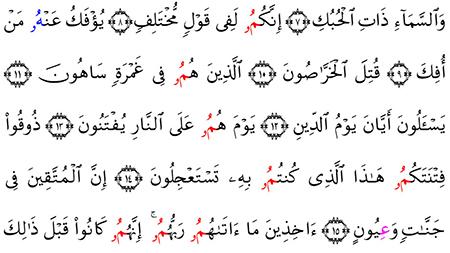 وَٱلسَّمَآءِ ذَاتِ ٱلْحُبُكِ ﴿٧﴾ إِنَّكُمُۥ لَفِى قَوْلٍ مُّخْتَلِفٍ ﴿٨﴾ يُؤْفَكُ عَنْهُۥ مَنْ
أُفِكَ ﴿٩﴾ قُتِلَ ٱلْخَرَّٰصُونَ ﴿١٠﴾ ٱلَّذِينَ هُمُۥ فِى غَمْرَةٍ سَاهُونَ ﴿١١﴾
يَسْـَٔلُونَ أَيَّانَ يَوْمُ ٱلدِّينِ ﴿١٢﴾ يَوْمَ هُمُۥ عَلَى ٱلنَّارِ يُفْتَنُونَ ﴿١٣﴾ ذُوقُوا۟
فِتْنَتَكُمُۥ هَٰذَا ٱلَّذِى كُنتُمُۥ بِهِۦ تَسْتَعْجِلُونَ ﴿١٤﴾ إِنَّ ٱلْمُتَّقِينَ فِى
جَنَّٰتٍ وَعِيُونٍ ﴿١٥﴾ ءَاخِذِينَ مَا ءَاتَىٰهُمُۥ رَبُّهُمُۥ ۚ إِنَّهُمُۥ كَانُوا۟ قَبْلَ ذَٰلِكَ